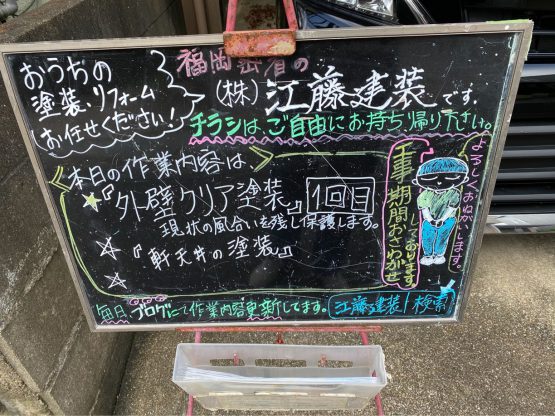 おうちの
塗装、リフォーム
お任せください!
福岡密着の
(株)江藤建装です。
チラシは、ご自由にお持ち帰り下さい。
本日の作業内容は
☆『外壁クリア塗装』1回目
現状の風合いを残し保護します。
☆『軒天井の塗装』
☆
工事期間おさわがせ
しております
よろしくおねがいします。
毎日ブログにて作業内容更新してます。
江藤建装 検索